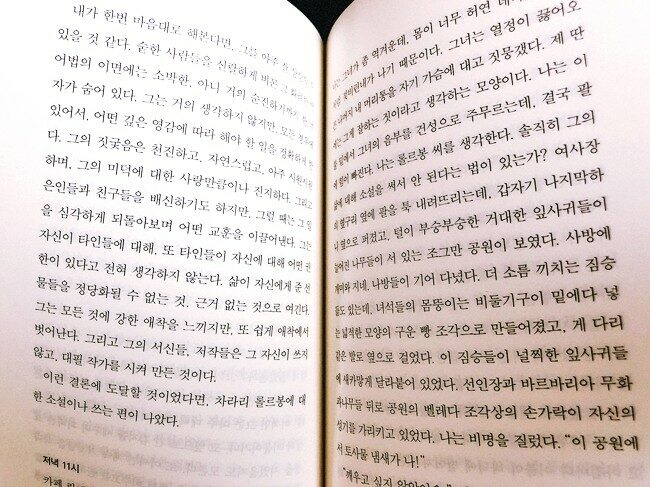 내가 한번 마음대로 해본다면, 그를 아주 잘
있을 것 같다. 숱한 사람들을 신랄하게 비꼰 그
어법의 이면에는 소박한, 아니 거의 순진하기까지 한
자가 숨어 있다. 그는 거의 생각하지 않지만, 모든
있어서, 어떤 깊은 영감에 따라 해야 할 일을 정확하게
다. 그의 짓궂음은 천진하고, 자연스럽고, 아주 시원시원
하며, 그의 미덕에 대한 사랑만큼이나 진지하다. 그리고
은인들과 친구들을 배신하기도 하지만, 그럴 때는 그 일
을 심각하게 되돌아보며 어떤 교훈을 이끌어낸다. 그는
자신이 타인들에 대해, 또 타인들이 자신에 대해 어떤 권
한이 있다고 전혀 생각하지 않는다. 삶이 자신에게 준 선
물들을 정당화될 수 없는 것, 근거 없는 것으로 여긴다.
그는 모든 것에 강한 애착을 느끼지만, 또 쉽게 애착에서
벗어난다. 그리고 그의 서신들, 저작들은 그 자신이 쓰지
않고, 대필 작가를 시켜 만든 것이다.
이런 결론에 도달할 것이었다면, 차라리 롤르봉에 대
한 소설이나 쓰는 편이 나았다.
저녁 11시
카페
그녀가 좀 역겨운데, 몸이 너무 허연 데
갓난내가 나기 때문이다. 그녀는 열정이 끓어오
내 머리통을 자기 가슴에 대고 짓뭉갰다. 제 딴
그게 잘하는 짓이라고 생각하는 모양이다. 나는 이
밑에서 그녀의 음부를 건성으로 주무르는데, 결국 팔
힘이 빠진다. 나는 롤르봉 씨를 생각한다. 솔직히 그의
에 대해 소설을 써서 안 된다는 법이 있는가? 여사장
의 옆구리 옆에 팔을 툭 내려뜨리는데, 갑자기 나지막하
옆으로 퍼졌고, 털이 부숭부숭한 거대한 잎사귀들이
늘어진 나무들이 서 있는 조그만 공원이 보였다. 사방에
개미와 지네, 나방들이 기어 다녔다. 더 소름 끼치는 짐승
들도 있는데, 녀석들의 몸뚱이는 비둘기구이 밑에다 넣
는 넓적한 모양의 구운 빵 조각으로 만들어졌고, 게 다리
같은 발로 옆으로 걸었다. 이 짐승들이 널찍한 잎사귀들
에 새카맣게 달라붙어 있었다. 선인장과 바르바리아 무화
과나무들 뒤로 공원의 벨레다 조각상의 손가락이 자신의
성기를 가리키고 있었다. 나는 비명을 질렀다. “이 공원에
서 토사물 냄새가 나!”
“깨우고 싶지 않았어요.”